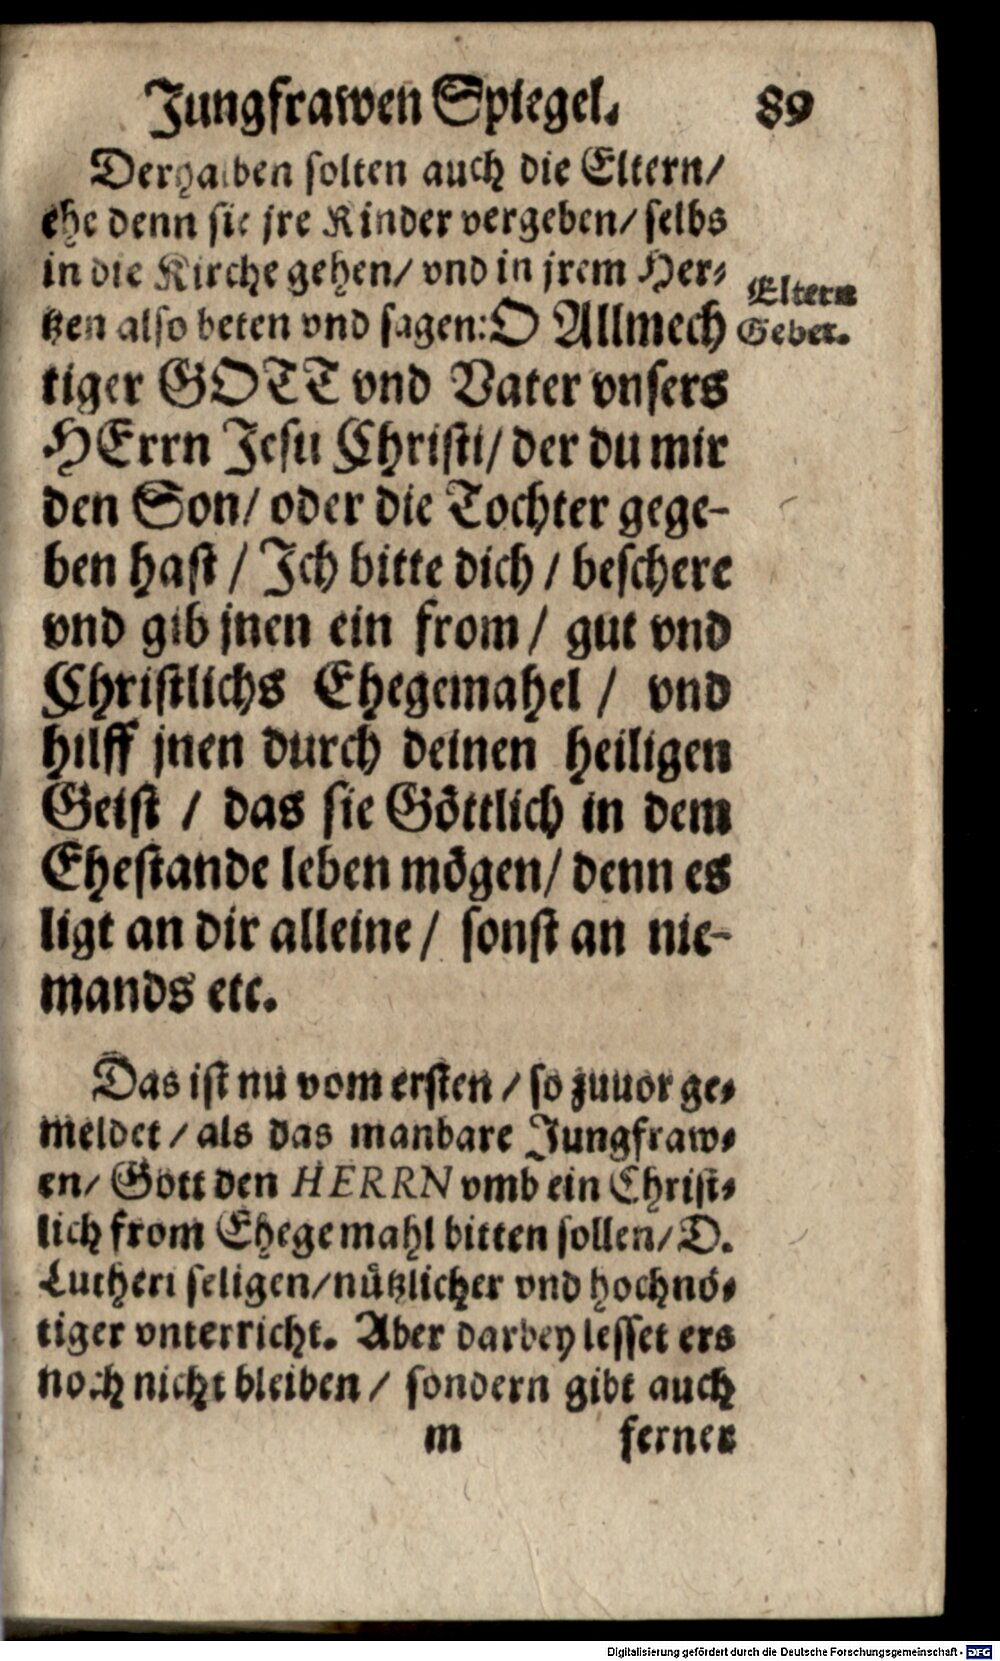 Jungfrawen Spiegel. 89
Derhalben solten auch die Eltern/
ehe denn sie jre Kinder vergeben/ selbs
in die Kirche gehen/ vnd in jrem Her-
tzen also beten vnd sagen: O Allmech
Eltern
Gebet.
tiger GOTT vnd Vater vnsers
HErrn Jesu Christi/ der du mir
den Son/ oder die Tochter gege-
ben hast / Ich bitte dich / beschere
vnd gib jnen ein from / gut vnd
Christlichs Ehegemahel / vnd
hilff jnen durch deinen heiligen
Geist / das sie Göttlich in dem
Ehestande leben mögen/ denn es
ligt an dir alleine / sonst an nie-
mands etc.
Das ist nu vom ersten / so zuuor ge-
meldet / als das manbare Jungfraw-
en/ Gott den HERRN vmb ein Christ-
lich from Ehegemahl bitten sollen/ D.
Lutheri seligen/ nützlicher vnd hochnö-
tiger vnterricht. Aber darbey lesset ers
noch nicht bleiben / sondern gibt auch
m ferner
Digitalisierung gefördert durch die Deutsche Forschungsgemeinschaft - DFG